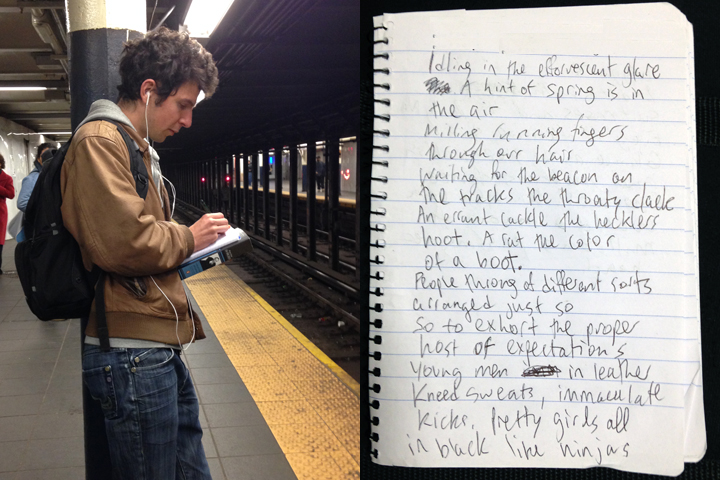 Idling in the efforvescent glare
A hint of spring is in
the air
Milling running fingers
through our hair
waiting for the beacon on
the tracks the throaty clack
An errant cackle the hecklers
hoot. A rat the color
of a boot.
People throng of different sorts
arranged just so
So to exhort the proper
host of expectations
Young men in leather
Kneed sweats, immaculate
kicks, pretty girls all
in black like ninjas